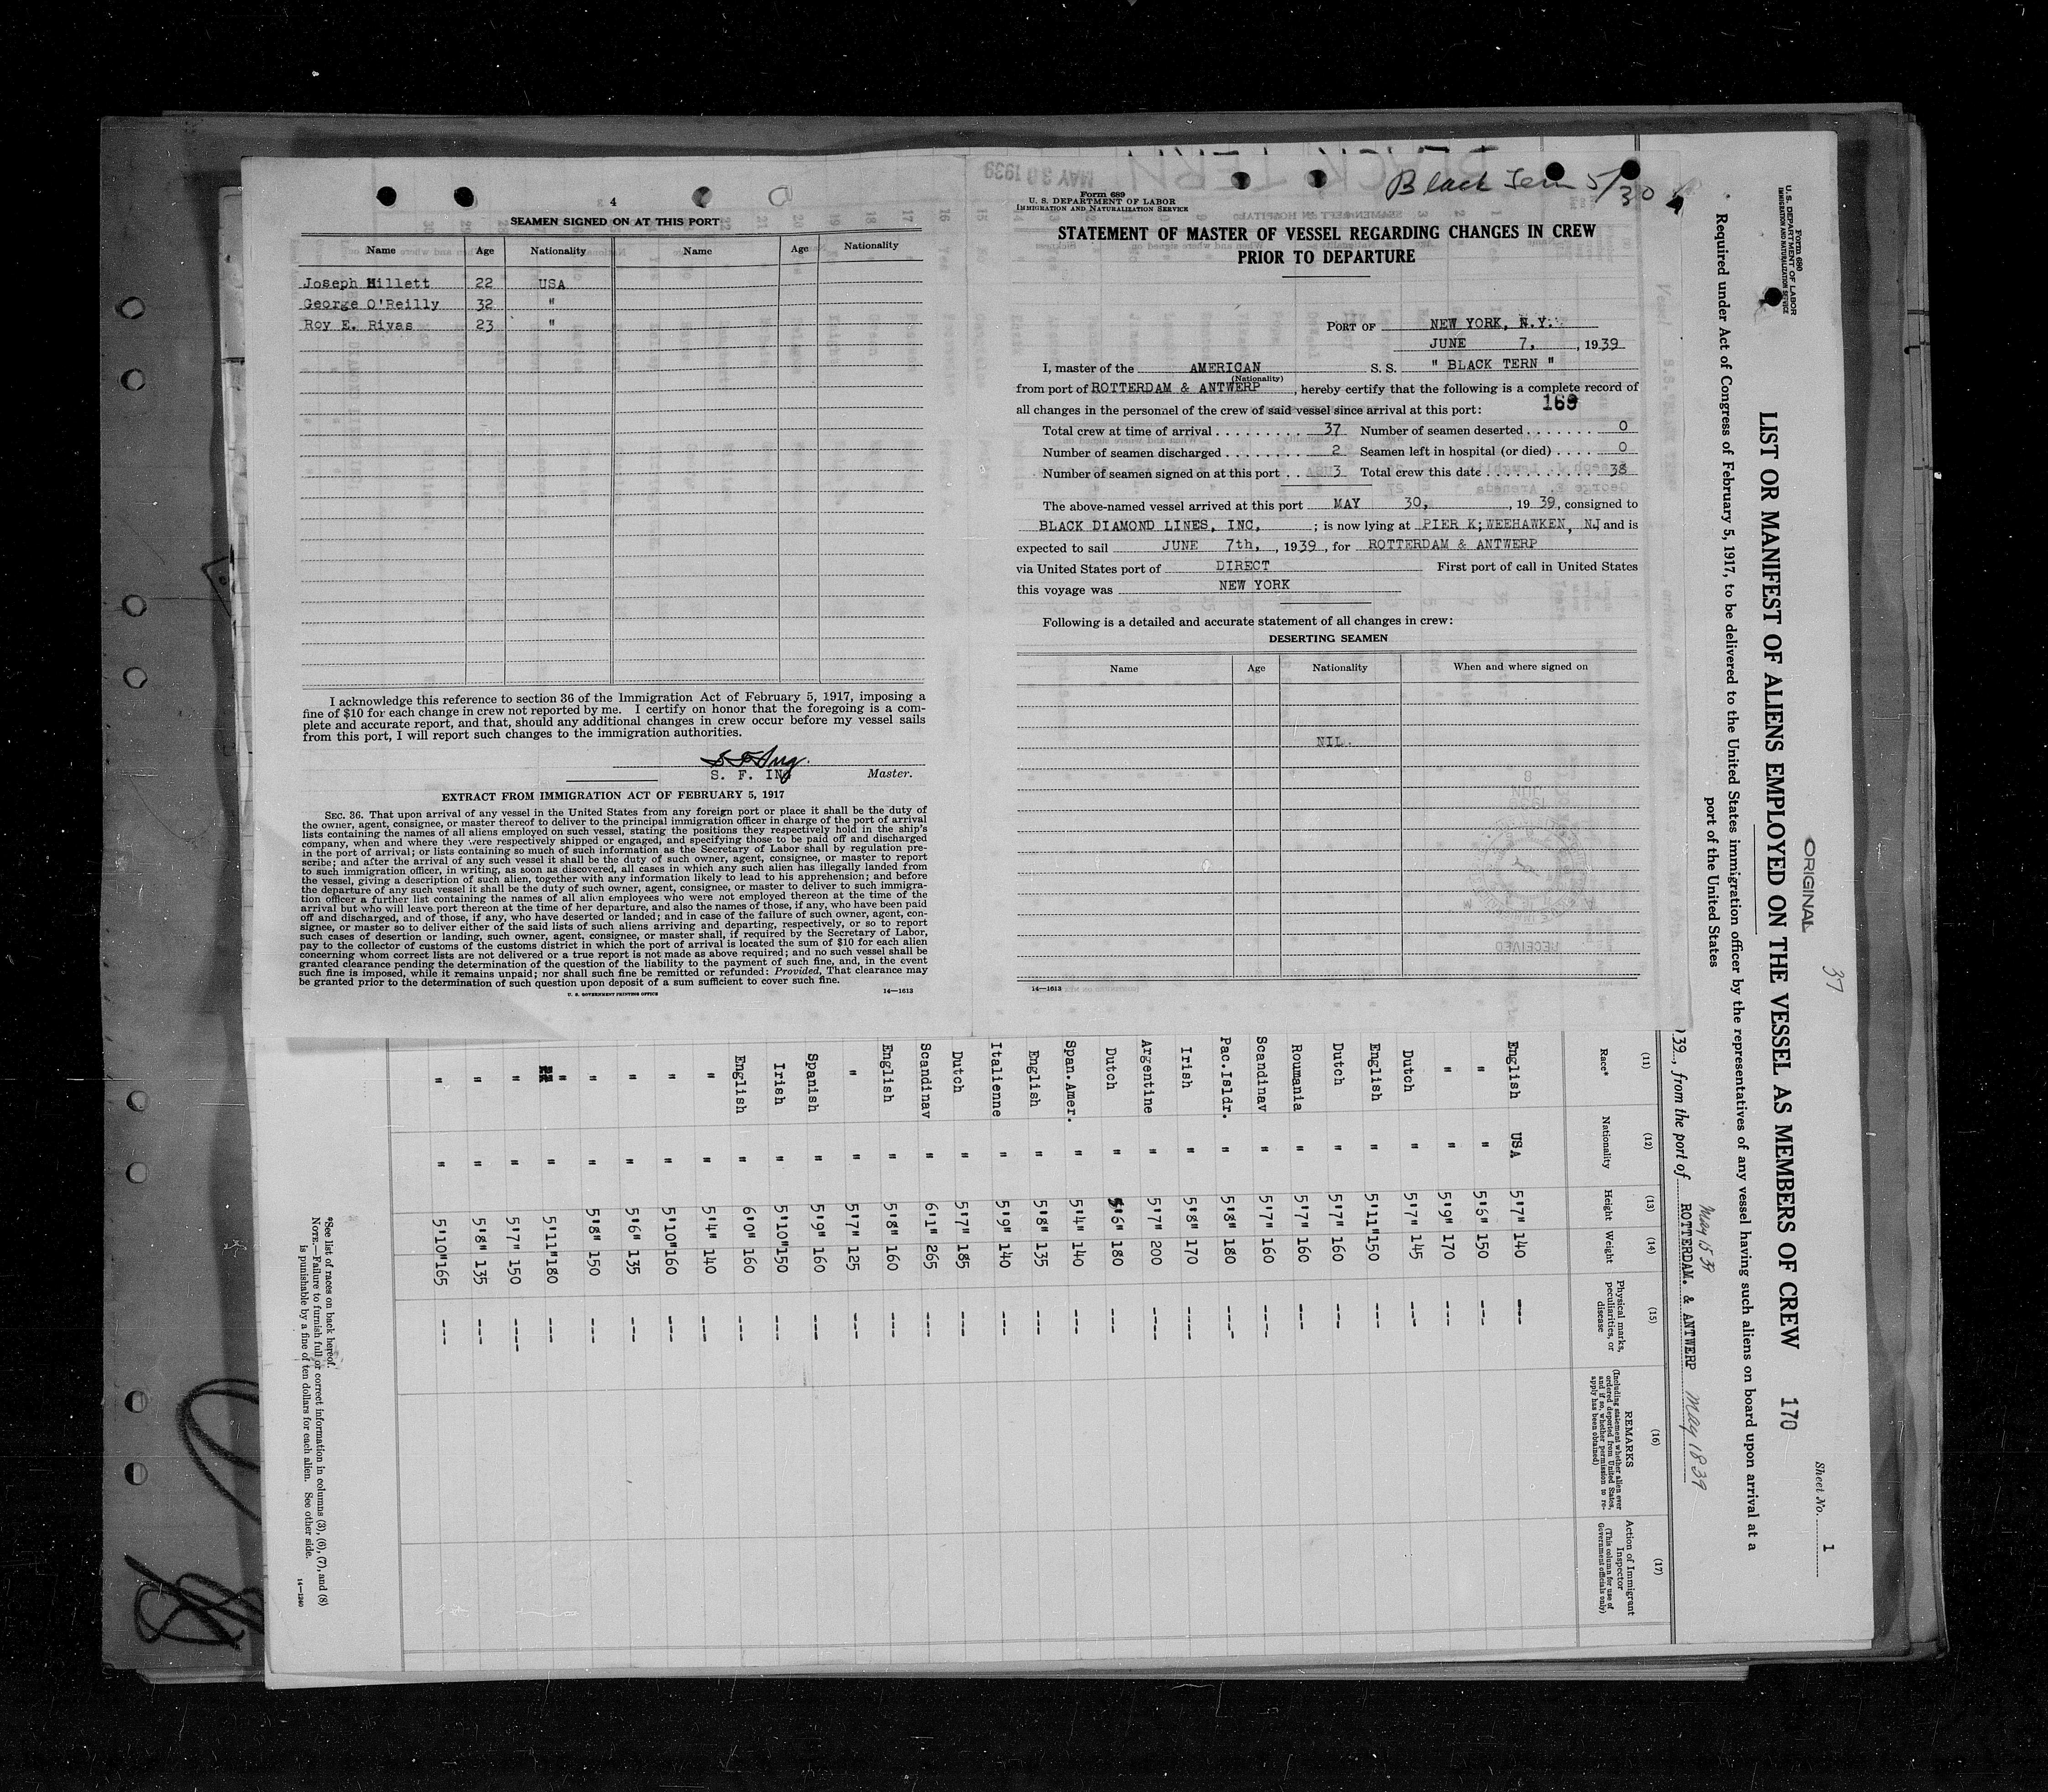 4
SEAMEN SIGNED ON AT THIS PORT
Name Age Nationality Name Age Nationality
Joseph Hillett 22 USA
George O'Reilly 32 "
Roy E. Rivas 23 "
I acknowledge this reference to section 36 of the Immigration Act of February 5, 1917, imposing a
fine of $10 for each change in crew not reported by me. I certify on honor that the foregoing is a com-
plete and accurate report, and that, should any additional changes in crew occur before my vessel sails
from this port, I will report such changes to the immigration authorities.
S F Ing.
S. F. ING Master.
EXTRACT FROM IMMIGRATION ACT OF FEBRUARY 5, 1917
SEC. 36. That upon arrival of any vessel in the United States from any foreign port or place it shall be the duty of
the owner, agent, consignee, or master thereof to deliver to the principal immigration officer in charge of the port of arrival
lists containing the names of all aliens employed on such vessel, stating the positions they respectively hold in the ship's
company, when and where they were respectively shipped or engaged, and specifying those to be paid off and discharged
in the port of arrival; or lists containing so much of such information as the Secretary of Labor shall by regulation pre-
scribe; and after the arrival of any such vessel it shall be the duty of such owner, agent, consignee, or master to report
to such immigration officer, in writing, as soon as discovered, all cases in which any such alien has illegally landed from
the vessel, giving a description of such alien, together with any information likely to lead to his apprehension; and before
the departure of any such vessel it shall be the duty of such owner, agent, consignee, or master to deliver to such immigra-
tion officer a further list containing the names of all alien employees who were not employed thereon at the time of the
arrival but who will leave port thereon at the time of her departure, and also the names of those, if any, who have been paid
off and discharged, and of those, if any, who have deserted or landed; and in case of the failure of such owner, agent, con-
signee, or master so to deliver either of the said lists of such aliens arriving and departing, respectively, or so to report
such cases of desertion or landing, such owner, agent, consignee, or master shall, if required by the Secretary of Labor,
pay to the collector of customs of the customs district in which the port of arrival is located the sum of $10 for each alien
concerning whom correct lists are not delivered or a true report is not made as above required; and no such vessel shall be
granted clearance pending the determination of the question of the liability to the payment of such fine, and, in the event
such fine is imposed, while it remains unpaid; nor shall such fine be remitted or refunded: Provided, That clearance may
be granted prior to the determination of such question upon deposit of a sum sufficient to cover such fine.
U. S. GOVERNMENT PRINTING OFFICE 14—1613
Black Tern 5/30
Form 689
U. S. DEPARTMENT OF LABOR
IMMIGRATION AND NATURALIZATION SERVICE
STATEMENT OF MASTER OF VESSEL REGARDING CHANGES IN CREW
PRIOR TO DEPARTURE
PORT OF NEW YORK, N.Y.
JUNE 7, , 1939
I, master of the AMERICAN S. S. " BLACK TERN "
(Nationality)
from port of ROTTERDAM & ANTWERP , hereby certify that the following is a complete record of
all changes in the personnel of the crew of said vessel since arrival at this port: 169
Total crew at time of arrival 37 Number of seamen deserted 0
Number of seamen discharged 2 Seamen left in hospital (or died) 0
Number of seamen signed on at this port 3 Total crew this date 38
The above-named vessel arrived at this port MAY 30, , 1939, consigned to
BLACK DIAMOND LINES, INC, ; is now lying at PIER K;WEEHAWKEN, NJ and is
expected to sail JUNE 7th, , 1939, for ROTTERDAM & ANTWERP
via United States port of DIRECT First port of call in United States
this voyage was NEW YORK
Following is a detailed and accurate statement of all changes in crew:
DESERTING SEAMEN
Name Age Nationality When and where signed on
NIL.
14—1613
Form 680
U. S. DEPARTMENT OF LABOR
IMMIGRATION AND NATURALIZATION SERVICE
ORIGINAL
37
Sheet No. 1
LIST OR MANIFEST OF ALIENS EMPLOYED ON THE VESSEL AS MEMBERS OF CREW 170
Required under Act of Congress of February 5, 1917, to be delivered to the United States immigration officer by the representatives of any vessel having such aliens on board upon arrival at a
port of the United States
May 15 39
39, from the port of ROTTERDAM. & ANTWERP May 18 39
(11) (12) (13) (14) (15) (16) (17)
Race* Nationality Height Weight Physical marks, peculiarities, or disease REMARKS (Including statement whether alien ever ordered deported from United States, and if so, whether permission to re-apply has been obtained) Action of Immigrant Inspector (This column for use of Government officials only)
English USA 5'7" 140 ---
" " 5'6" 150 ---
" " 5'9" 170 ---
Dutch " 5'7" 145 ---
English " 5'11" 150 ---
Dutch " 5'7" 160 ---
Roumania " 5'7" 160 ---
Scandinav " 5'7" 160 ----
Pac.Isldr. " 5'8" 180 ----
Irish " 5'8" 170 ----
Argentine " 5'7" 200 ----
Dutch " 5'6" 180 ---
Span.Amer. " 5'4" 140 ---
English " 5'8" 135 ---
Italienne " 5'9" 140 ---
Dutch " 5'7" 185 ---
Scandinav " 6'1" 265 ---
English " 5'8" 160 ---
" " 5'7" 125 ---
Spanish " 5'9" 160 ---
Irish " 5'10" 150 ---
English " 6'0" 160 ---
" " 5'4" 140 ---
" " 5'10" 160 ---
" " 5'6" 135 ---
" " 5'8" 150 ---
" " 5'11" 180 ---
" " 5'7" 150 ----
" " 5'8" 135 ---
" " 5'10" 165 ---
*See list of races on back hereof.
NOTE.—Failure to furnish full or correct information in columns (3), (6), (7), and (8)
is punishable by a fine of ten dollars for each alien. See other side.
14—1240